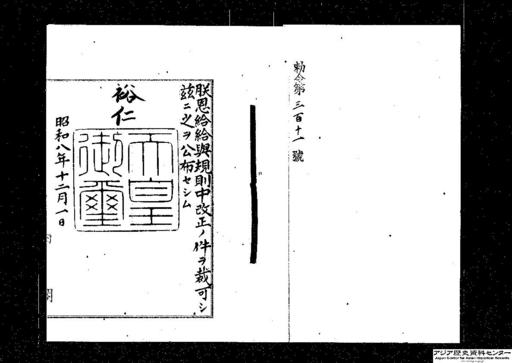 勅令第三百十一號
朕恩給給與規則中改正ノ件ヲ裁可シ
茲ニ之ヲ公布セシム
裕仁
天皇
御璽
昭和八年十二月一日
内閣
アジア歴史資料センター
Japan Center for Asian Historical Records